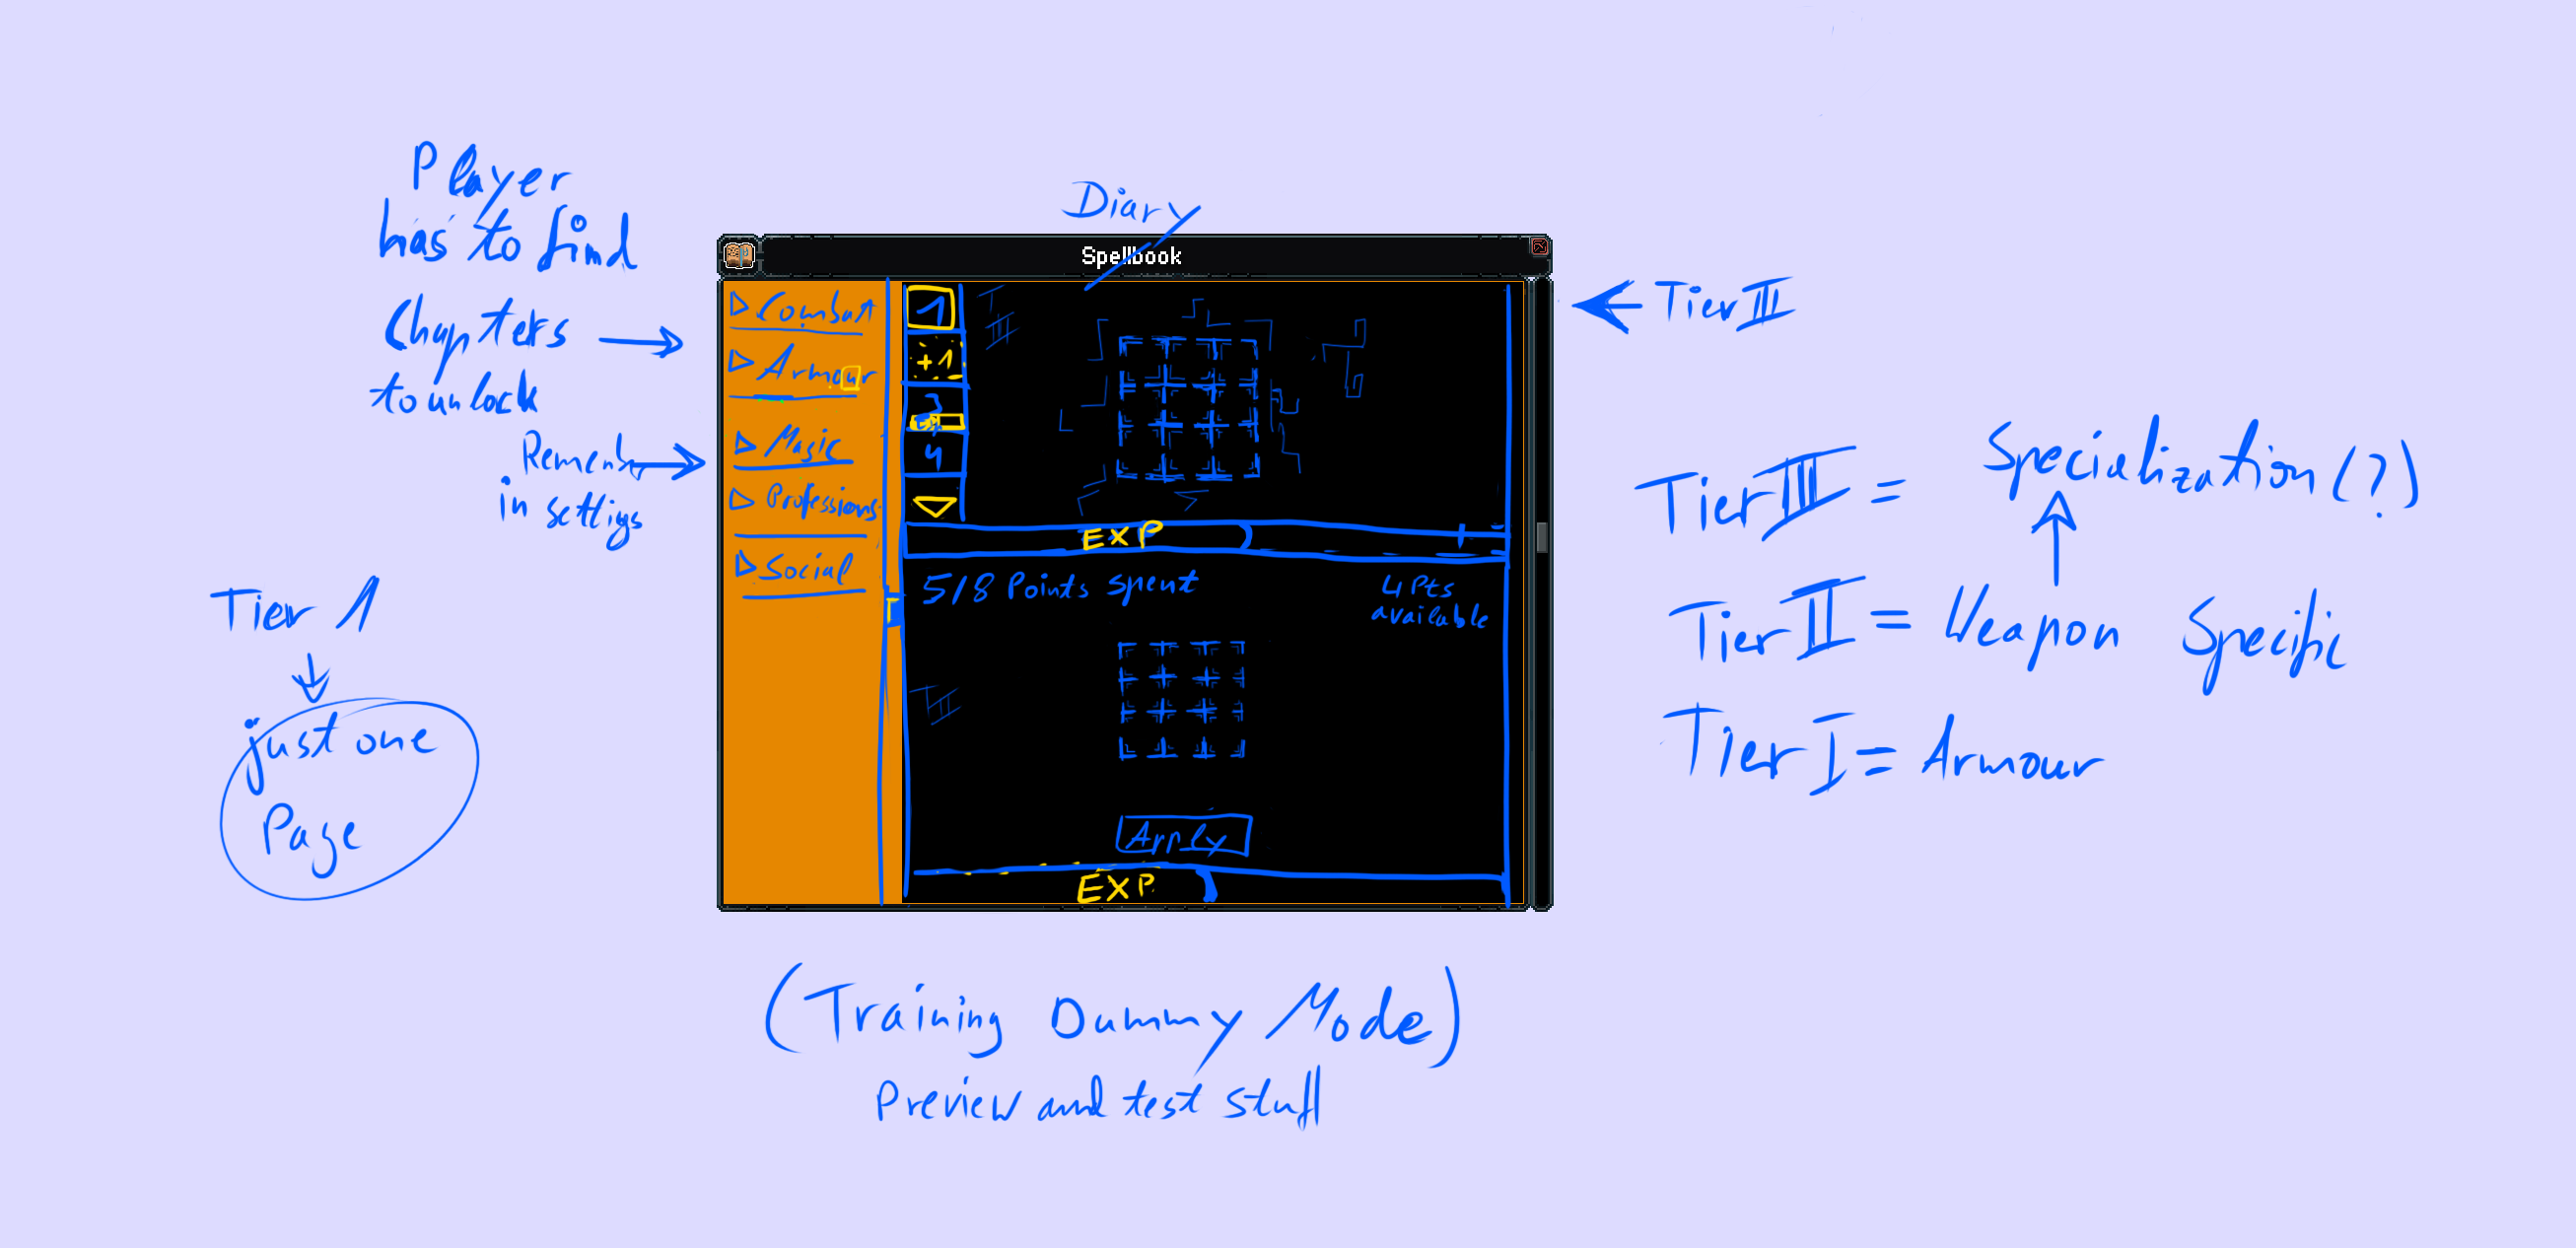 Player
has to find
Chapters
to unlock
Remember
in settigs
Tier 1
just one
Page
Diary
Spellbook
Combat
Armour
Magic
Professions
Social
1
+1
3
4
T III
EXP
5/8 Points spent
4 Pts
available
Apply
EXP
Tier III
Tier III = Specialization (?)
Tier II = Weapon Specific
Tier I = Armour
(Training Dummy Mode)
Preview and test stuff